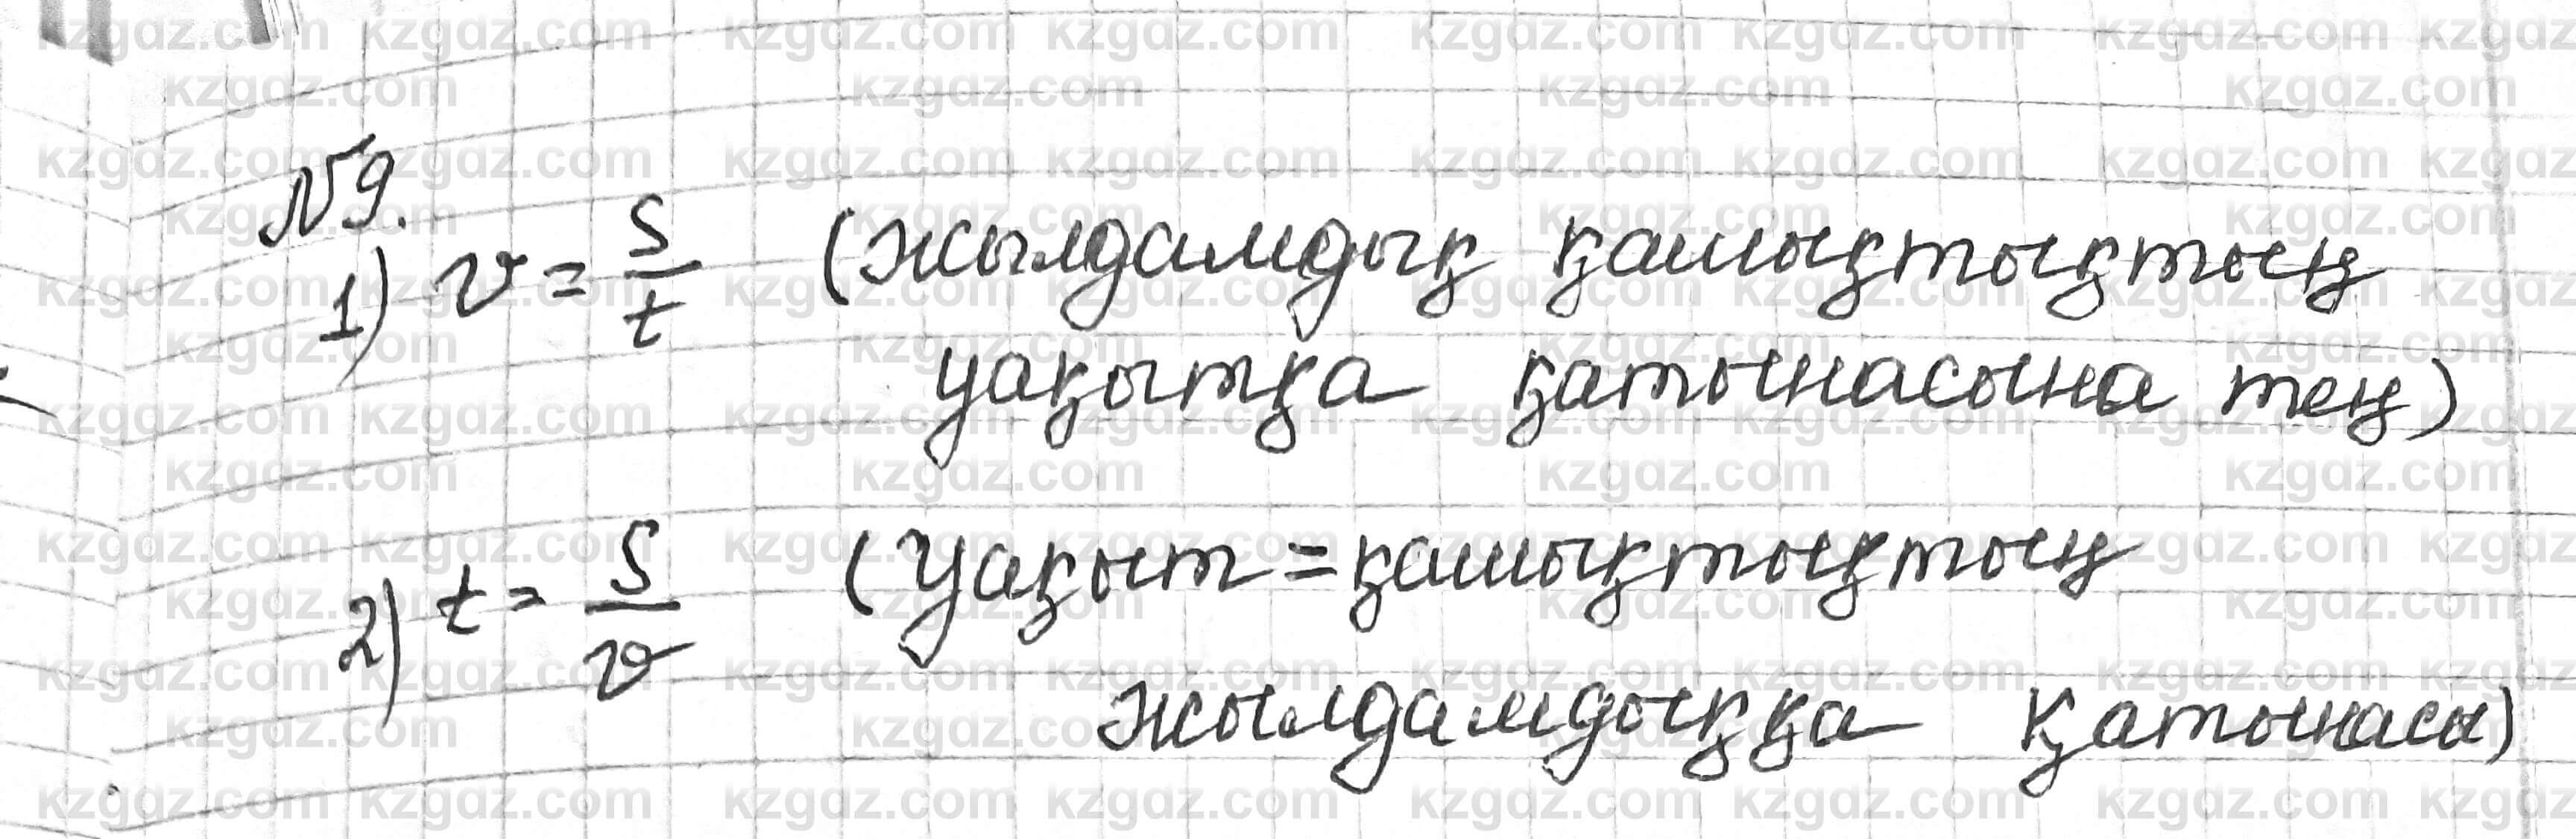 №9.
1) v = s/t (жылдамдық қашықтықтың
уақытқа қатынасына тең)
2) t = s/v (Уақыт = қашықтықтың
жылдамдыққа қатынасы)
kzgdz.com